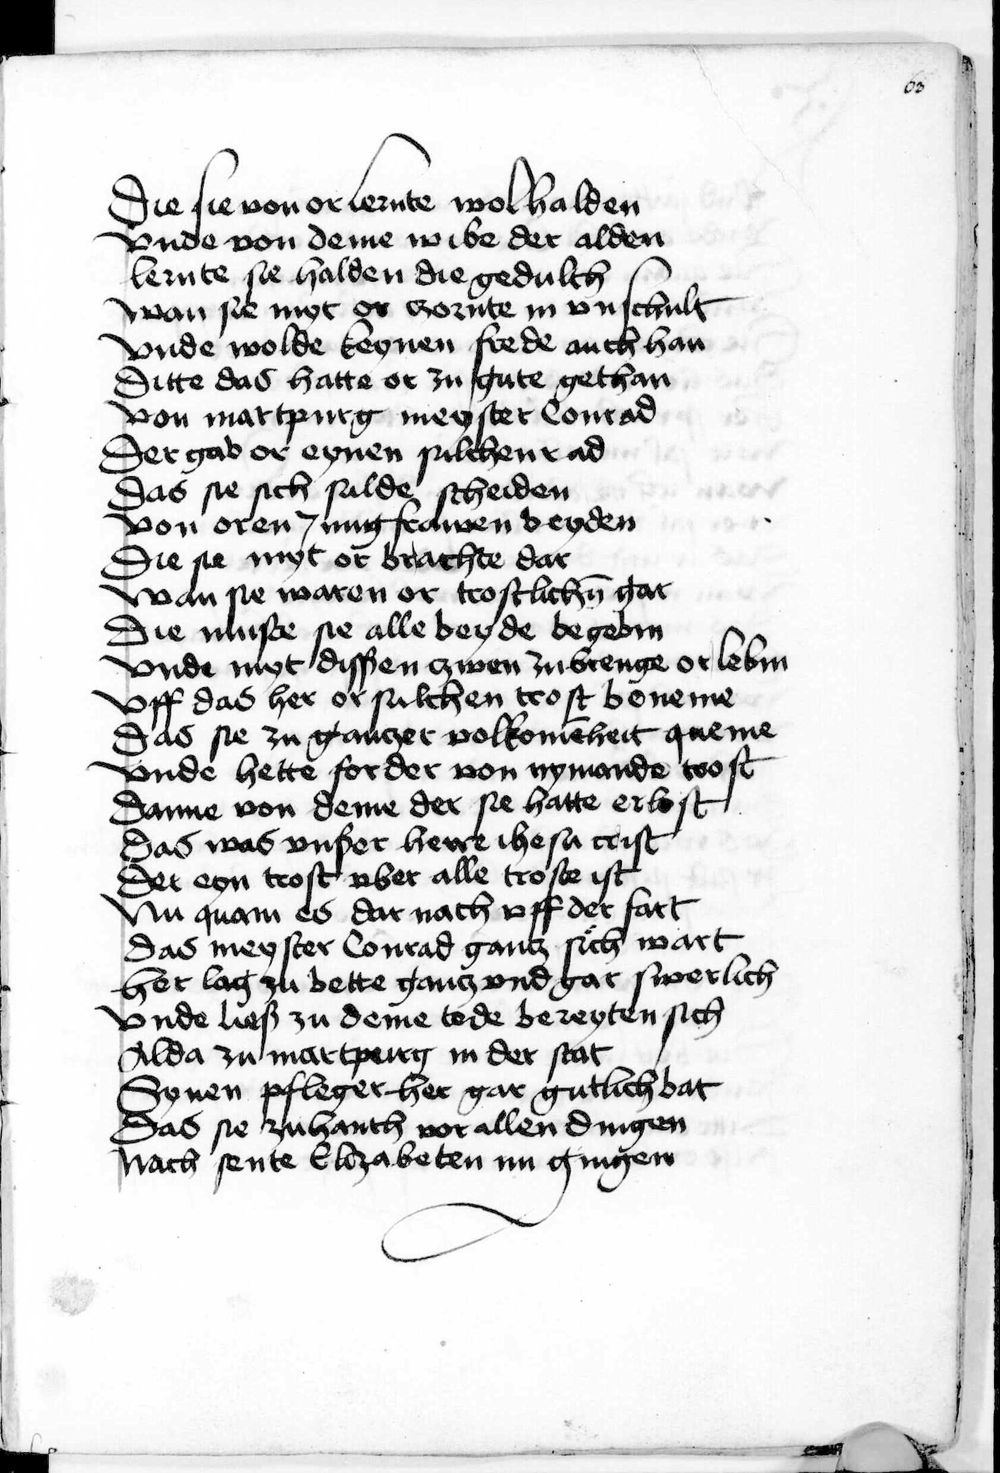 63
Die sie von or lernte wol halden
Vnde von deme wibe der alden
lernte sie halden die gedulth
Wan sie myt or zornte in vnschult
Vnde wolde keynen frede auch han
Ditte das hatte or zu gute gethan
Von martpurg meyster Conrad
Der gab or eynen sulchen rad
Das sie sich sulde scheiden
Von oren Jungfrawen beyden
Die sie myt or brachte dar
Wan sie waren or trostlichñ gar
Die muste sie alle beyde begebin
Vnde myt dissen czwen zubrenge or lebin
Vff das her or sulchen trost beneme
Das sie zu gantzer volkom̄enheit queme
Vnde hette forder von nymande trost
Danne von deme der sie hatte erlost
Das was vnßer herre ihesu crist
Der eyn trost vber alle troste ist
Nu quam es dar nach vff der fart
Das meyster Conrad gantz sich wart
Her lag zu bette gantz vnd gar swerlich
Vnde ließ zu deme tode bereyten sich
Alda zu martpurg in der stat
Synen pfleger her gar gutlich bat
Das sie zuhanth vor allen dingen
Nach sente Elizabeten nu gingen